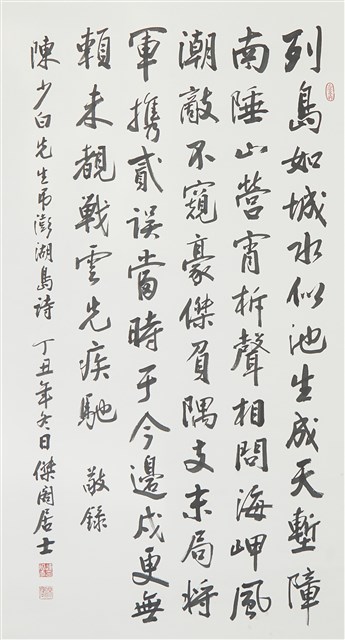 列島如城水似池生成天塹障
南陲山營宵柝聲相問海岬風
潮敵不窺豪傑負隅支末局將
軍携貳誤當時于今邊戍更無
賴未覩戰雲先疾馳 敬錄
陳少白先生弔澎湖島詩 丁丑年冬日傑閣居士